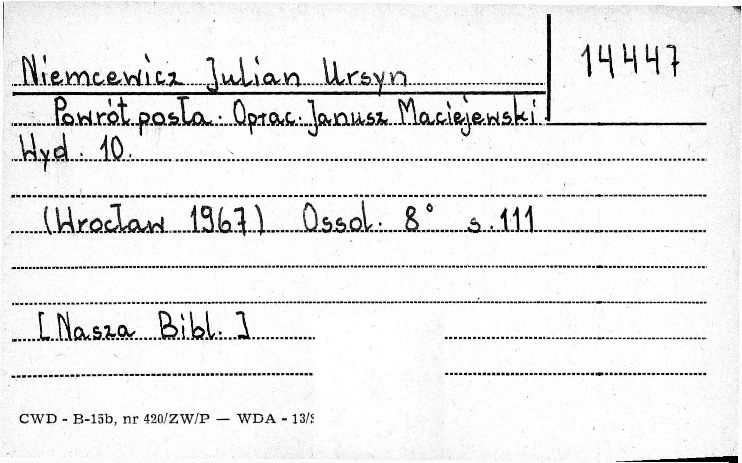 Niemcewicz Julian Ursyn
14447
Powrót posła. Oprac. Janusz Maciejewski
Wyd. 10.
(Wrocław 1967) Ossol. 8° s. 111
[Nasza Bibl.]
CWD - B-15b, nr 420/ZW/P — WDA - 13/